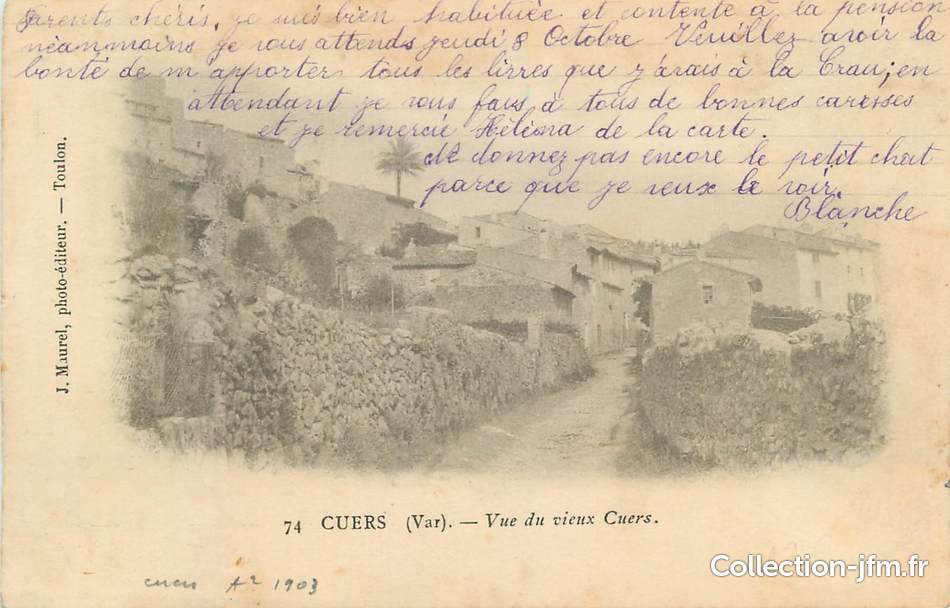 Parents chéris, je suis bien habituée et contente à la pension
néanmmoins je vous attends jeudi 8 Octobre Veuillez avoir la
bonté de m'apporter tous les livres que j'avais à la Crau; en
attendant je vous fais à tous de bonnes caresses
et je remercie Héléna de la carte.
Ne donnez pas encore le petit chat
parce que je veux le voir.
Blanche
J. Maurel, photo-éditeur. — Toulon.
74 CUERS (Var). — Vue du vieux Cuers.
Collection-jfm.fr
cuers 1903